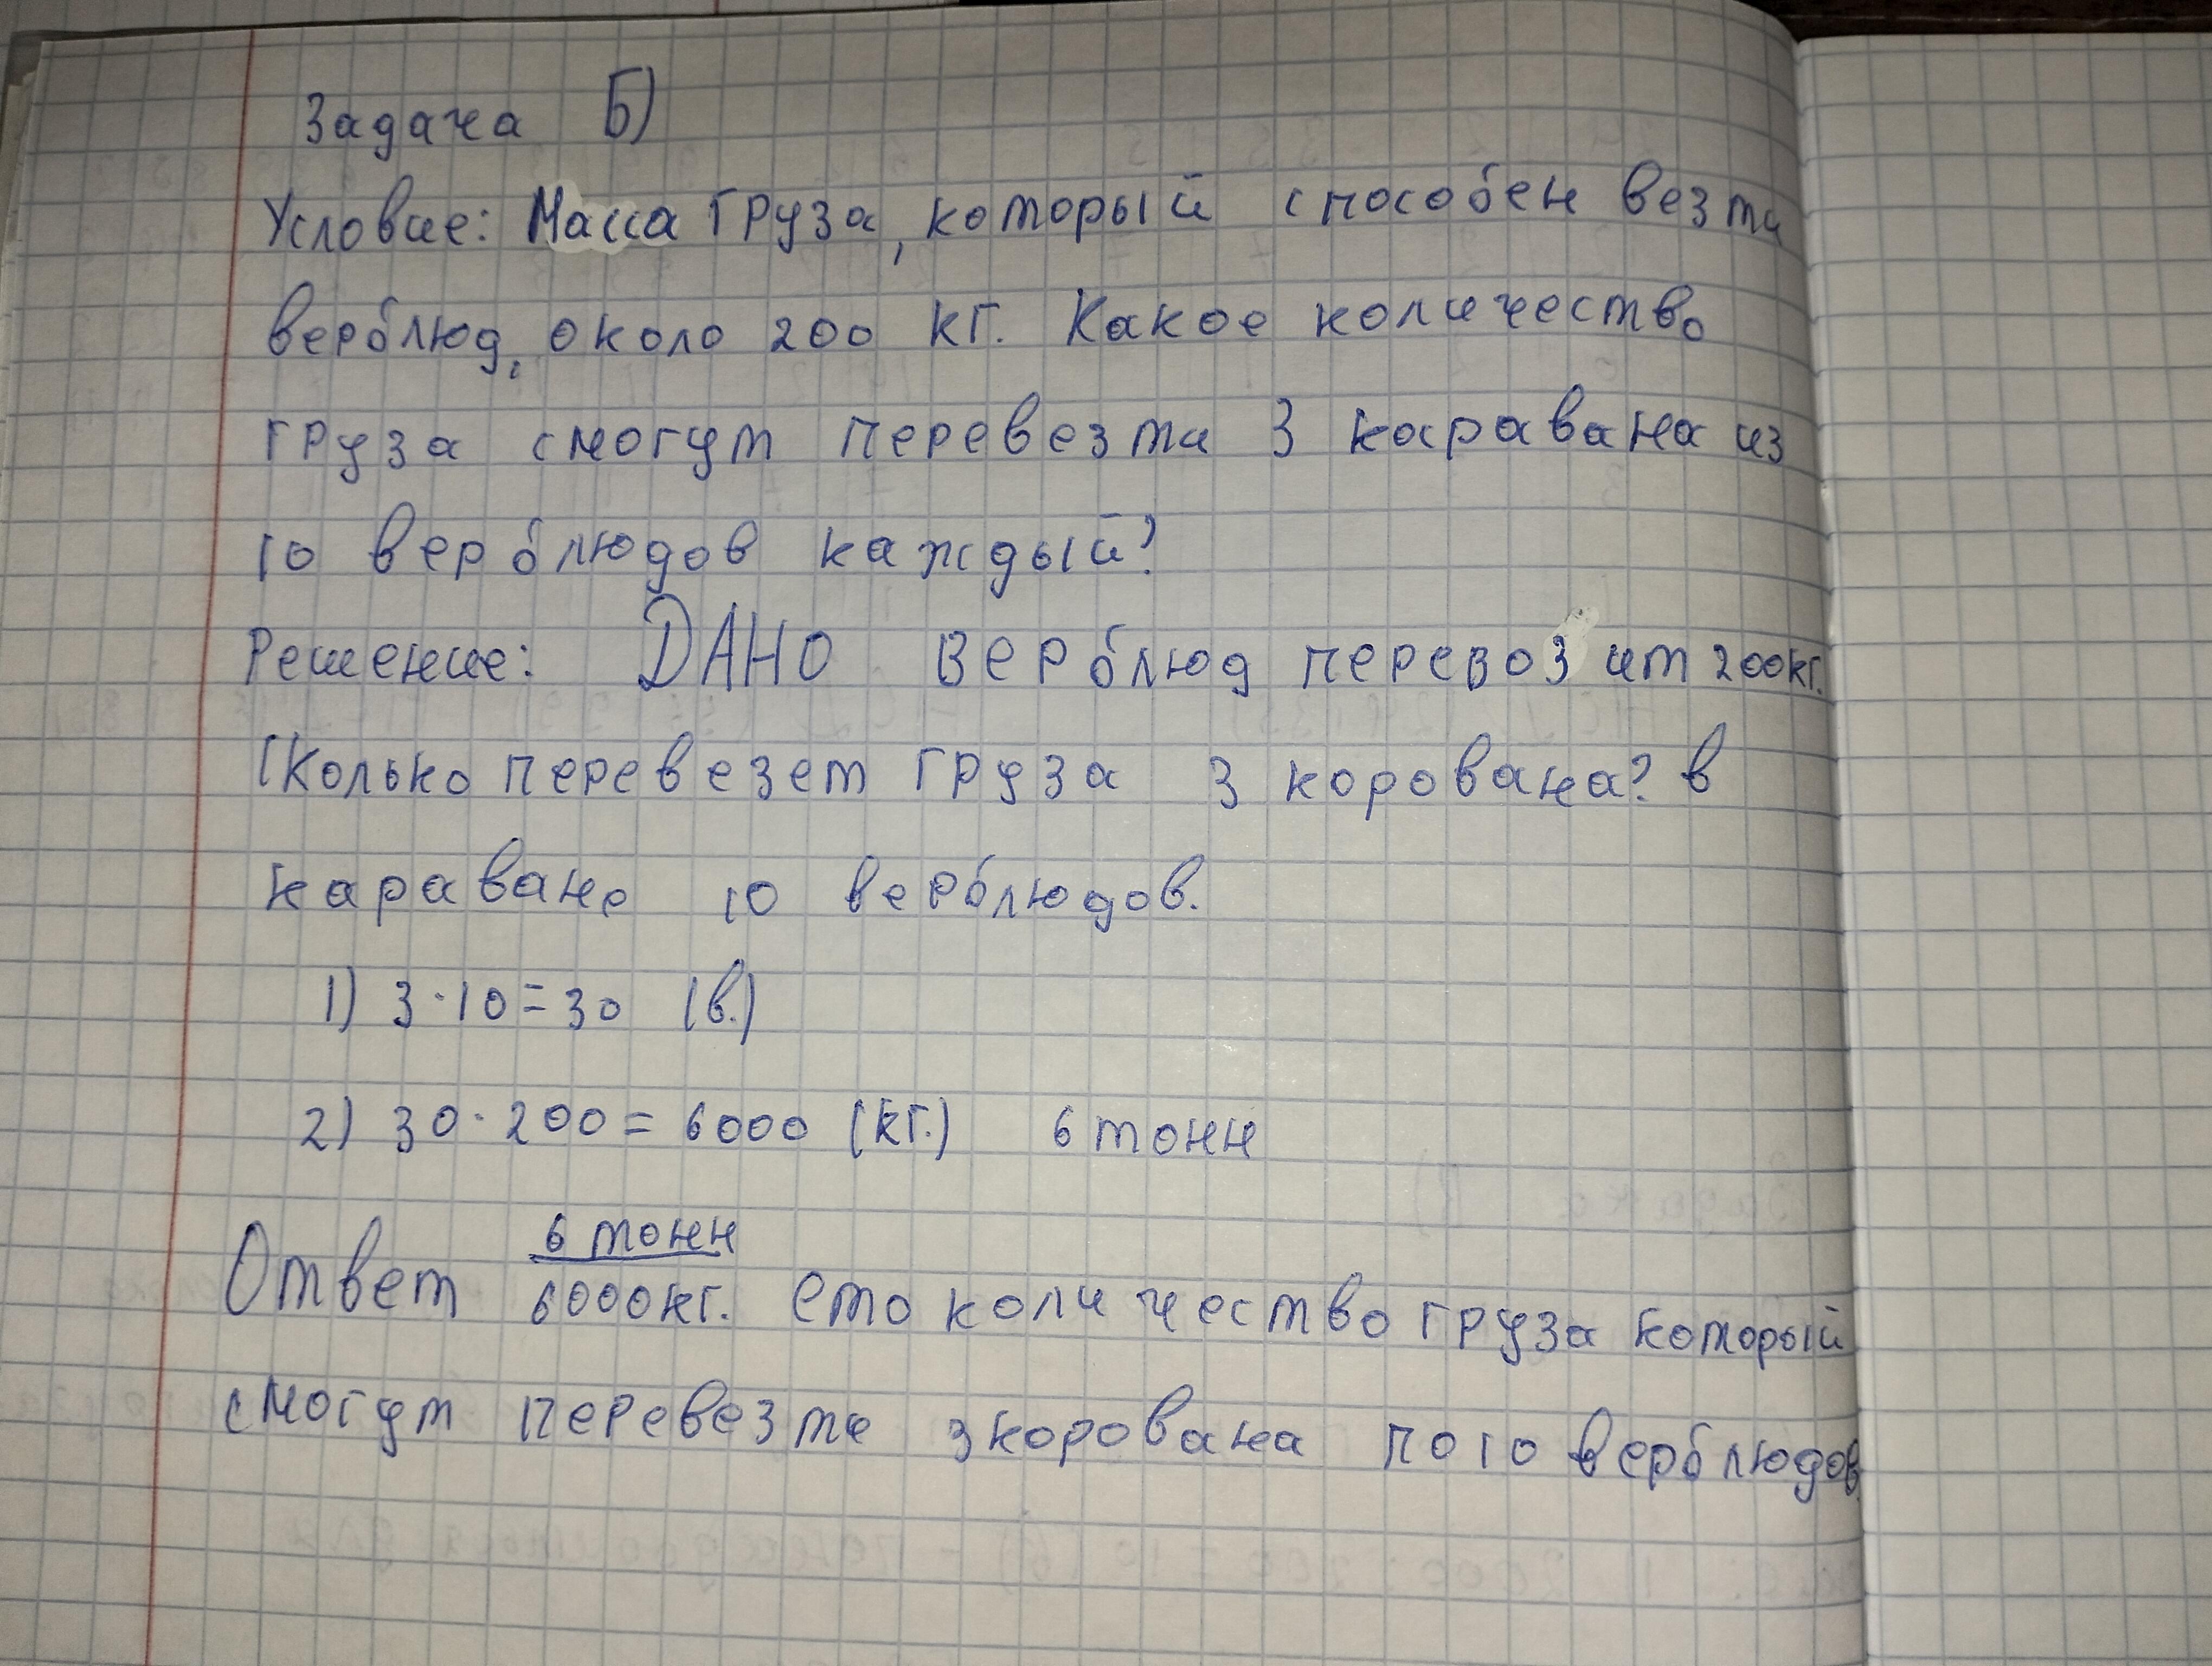 Задача Б)
Условие: Масса груза, который способен везти
верблюд, около 200 кг. Какое количество
груза смогут перевезти 3 каравана из
10 верблюдов каждый?
Решение: ДАНО верблюд перевозит 200кг.
Сколько перевезет груза 3 корована? в
караване 10 верблюдов.
1) 3·10=30 (в.)
2) 30·200=6000 (кг.) 6 тонн
6 тонн
Ответ 6000кг. ето количество груза который
смогут перевезти 3 корована по 10 верблюдов